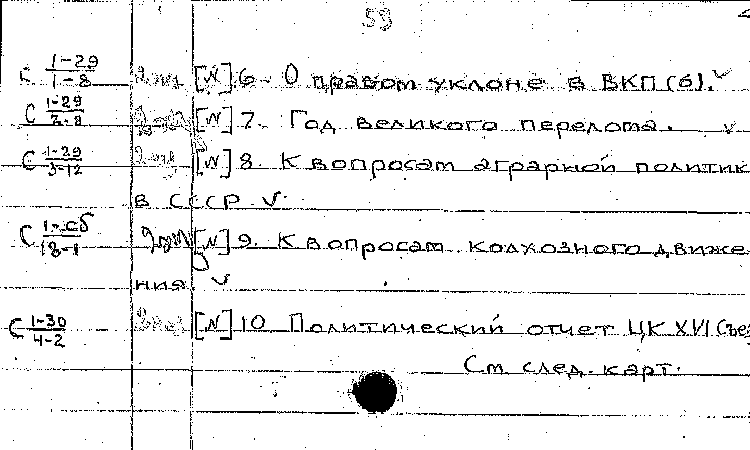 59
С 1-29/1-8 2 экз [N] 6. О правом уклоне в ВКП(б). V
С 1-29/2-8 [N] 7. Год великого перелома. V
С 1-29/3-12 2 экз [N] 8. К вопросам аграрной политик
в СССР. V
[N] 9. К вопросам колхозного движе
ния. V
С 1-30/4-2 [N] 10 Политический отчет ЦК XVI Съез
См. след. карт.